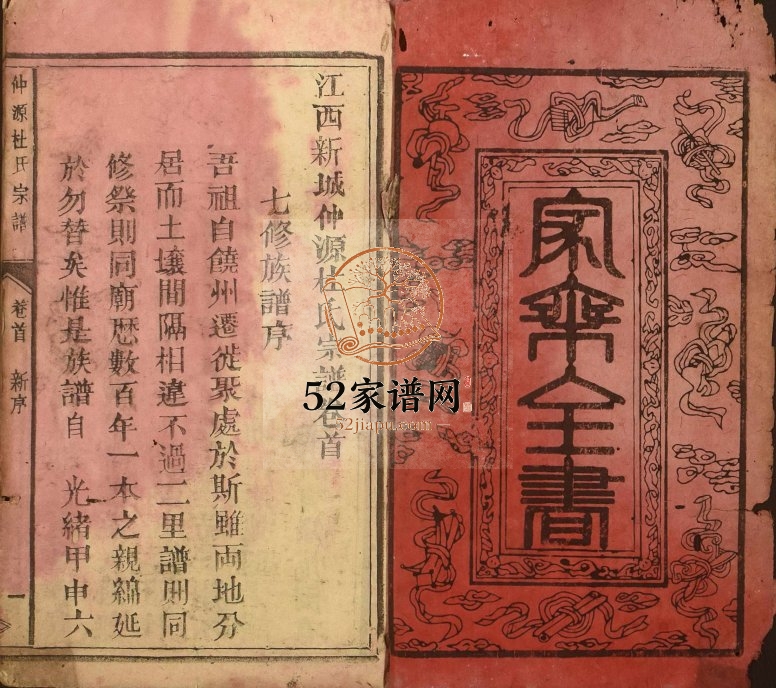 家乘全書
江西新城仲源杜氏宗譜卷首
七修族譜序
吾祖自饒州遷徙聚處於斯雖両地分
居而土壤間隔相違不過二里譜則同
修祭則同廟歷數百年一本之親綿延
於勿替矣惟是族譜自 光緒甲申六
仲源杜氏宗譜
卷首 新序
一
52家谱网
52jiapu.com